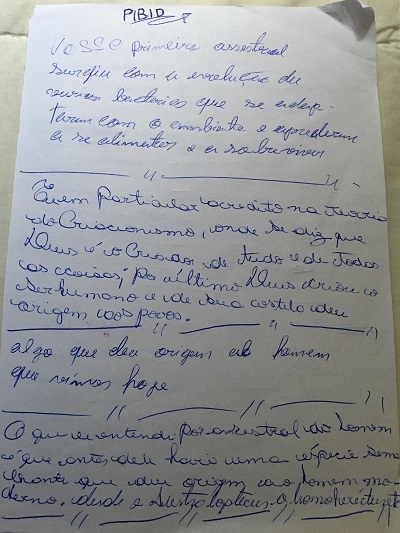 PIBID
Nosso primeiro ancestral
surgiu com a evolução de
varias bacterias que se adap-
taram com o ambiente e aprenderam
a se alimentar e a sobreviver
Eu em Particular acredito na teoria
do Criacionismo, onde se diz que
Deus é o Criador de tudo e de todas
as coisas; Po último Deus criou o
ser humano e de sua costela deu
origem aos povos.
algo que deu origem ao homem
que vimos hoje
O que eu entendi por ancestral do homem
é que antes dele havia uma espécie seme
lhante que deu origem ao homem mo-
derno. desde o homo